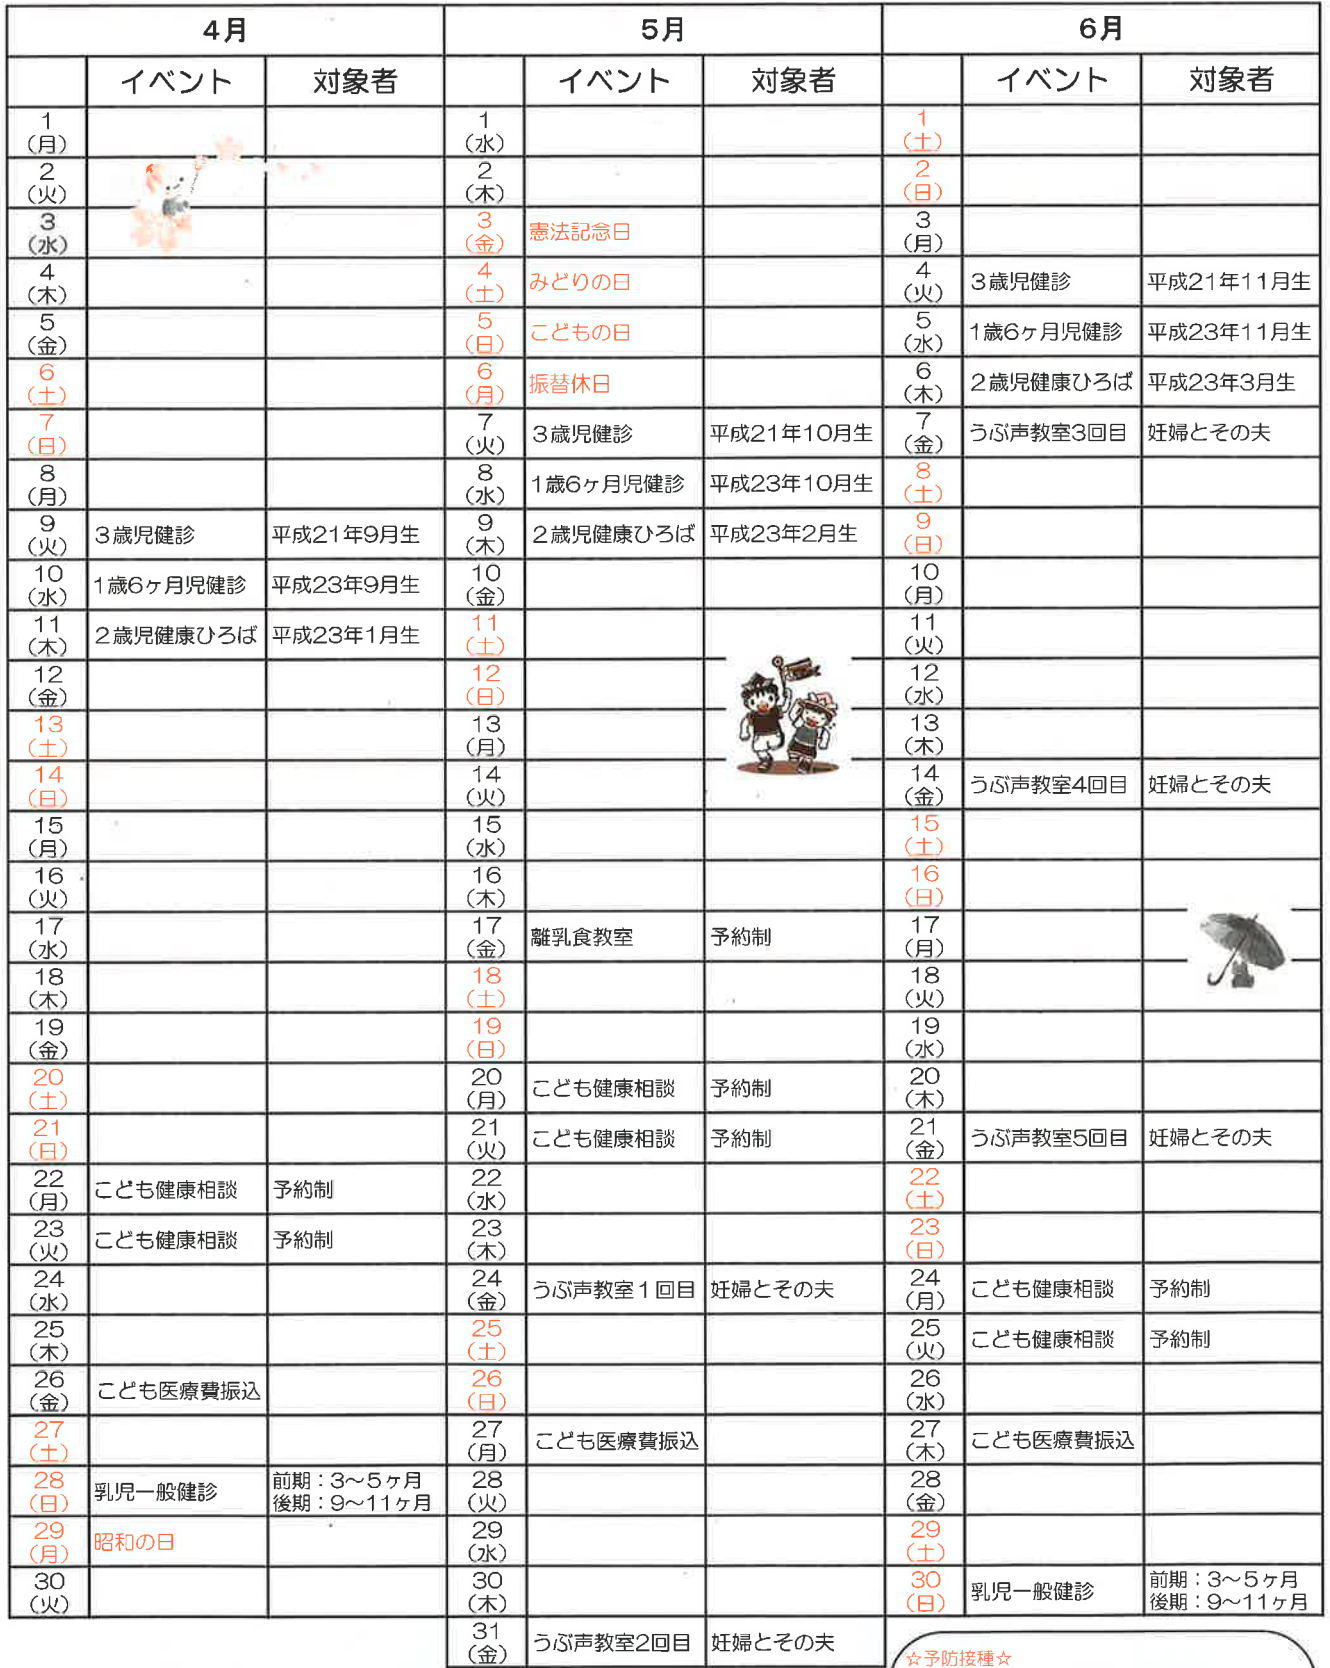 4月 5月 6月
イベント 対象者 イベント 対象者 イベント 対象者
1(月) 1(水) 1(土)
2(火) 2(木) 2(日)
3(水) 3(金) 憲法記念日 3(月)
4(木) 4(土) みどりの日 4(火) 3歳児健診 平成21年11月生
5(金) 5(日) こどもの日 5(水) 1歳6ヶ月児健診 平成23年11月生
6(土) 6(月) 振替休日 6(木) 2歳児健康ひろば 平成23年3月生
7(日) 7(火) 3歳児健診 平成21年10月生 7(金) うぶ声教室3回目 妊婦とその夫
8(月) 8(水) 1歳6ヶ月児健診 平成23年10月生 8(土)
9(火) 3歳児健診 平成21年9月生 9(木) 2歳児健康ひろば 平成23年2月生 9(日)
10(水) 1歳6ヶ月児健診 平成23年9月生 10(金) 10(月)
11(木) 2歳児健康ひろば 平成23年1月生 11(土) 11(火)
12(金) 12(日) 12(水)
13(土) 13(月) 13(木)
14(日) 14(火) 14(金) うぶ声教室4回目 妊婦とその夫
15(月) 15(水) 15(土)
16(火) 16(木) 16(日)
17(水) 17(金) 離乳食教室 予約制 17(月)
18(木) 18(土) 18(火)
19(金) 19(日) 19(水)
20(土) 20(月) こども健康相談 予約制 20(木)
21(日) 21(火) こども健康相談 予約制 21(金) うぶ声教室5回目 妊婦とその夫
22(月) こども健康相談 予約制 22(水) 22(土)
23(火) こども健康相談 予約制 23(木) 23(日)
24(水) 24(金) うぶ声教室1回目 妊婦とその夫 24(月) こども健康相談 予約制
25(木) 25(土) 25(火) こども健康相談 予約制
26(金) こども医療費振込 26(日) 26(水)
27(土) 27(月) こども医療費振込 27(木) こども医療費振込
28(日) 乳児一般健診 前期：3〜5ヶ月 後期：9〜11ヶ月 28(火) 28(金)
29(月) 昭和の日 29(水) 29(土)
30(火) 30(木) 30(日) 乳児一般健診 前期：3〜5ヶ月 後期：9〜11ヶ月
31(金) うぶ声教室2回目 妊婦とその夫
☆予防接種☆